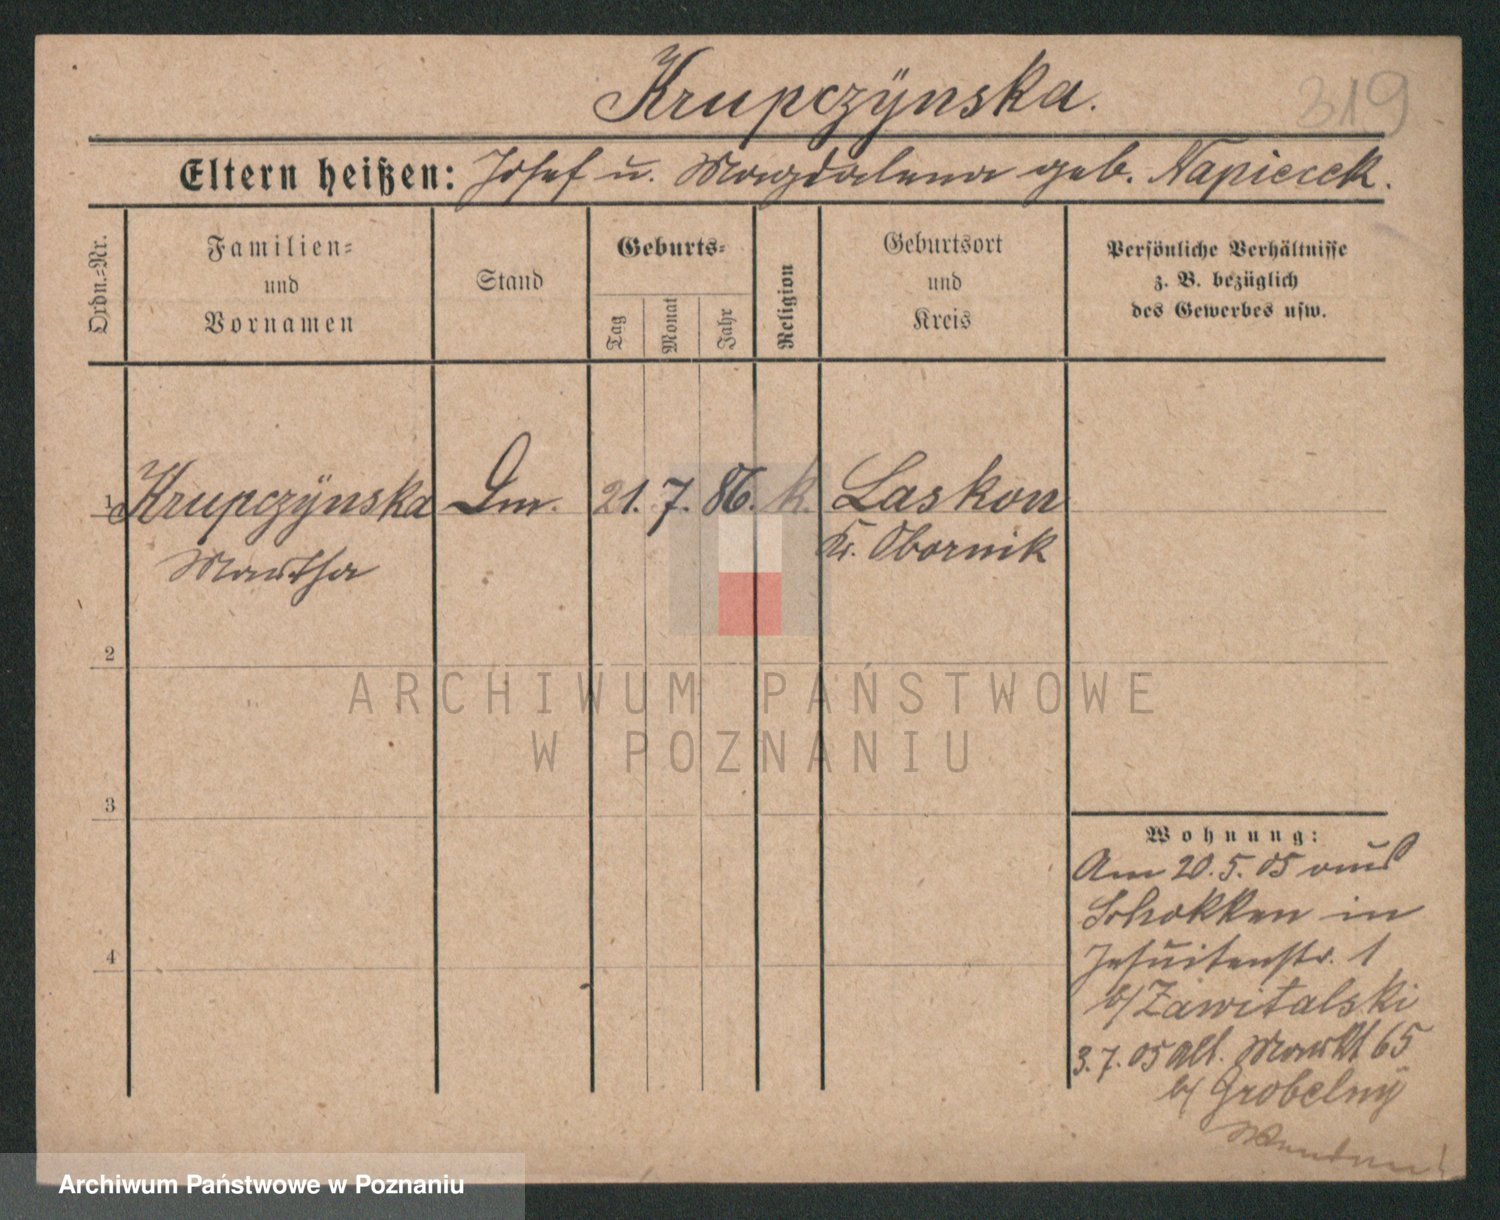 Krupczÿnska.
319
Eltern heißen: Josef u. Magdalena geb. Napiecek.
Ordn.=Nr.
Familien=
und
Vornamen
Stand
Geburts=
Tag
Monat
Jahr
Religion
Geburtsort
und
Kreis
Persönliche Verhältnisse
z. B. bezüglich
des Gewerbes usw.
1 Krupczÿnska Dm. 21. 7. 86. k. Laskon
Martha Kr. Obornik
2
ARCHIWUM PAŃSTWOWE
W POZNANIU
3
Wohnung:
Am 20. 5. 05 aus
Schokken in
Jesuitenstr. 1
b/ Zawitalski
4
3. 7. 05 Alt. Markt 65
b/ Grobelnÿ
Wenden!
Archiwum Państwowe w Poznaniu